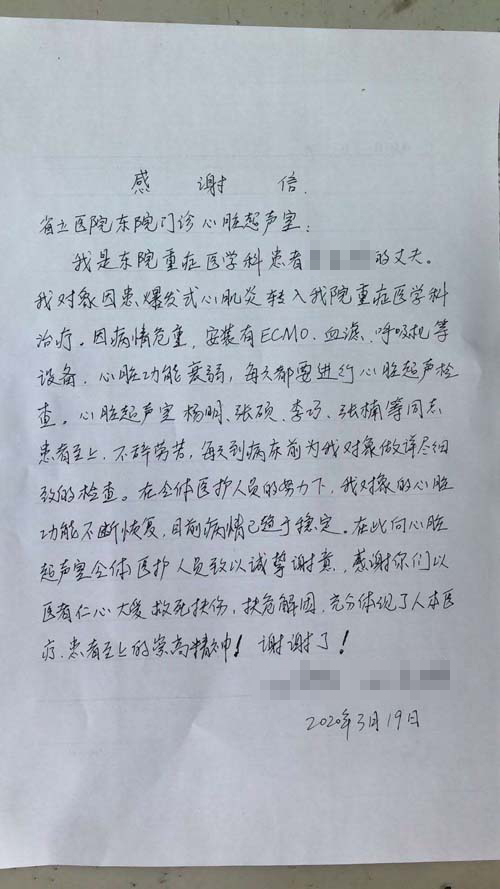 感谢信
省立医院东院门诊心脏超声室:
我是东院重症医学科患者的丈夫。
我对象因患爆发式心肌炎转入我院重症医学科
治疗。因病情危重,安装有ECMO、血滤、呼吸机等
设备,心脏功能衰弱,每天都要进行心脏超声检
查。心脏超声室杨明、张硕、李巧、张楠等同志
患者至上、不辞劳苦,每天到病床前为我对象做详尽细
致的检查。在全体医护人员的努力下,我对象的心脏
功能不断恢复,目前病情已趋于稳定。在此向心脏
超声室全体医护人员致以诚挚谢意,感谢你们以
医者仁心大爱救死扶伤,扶危解困,充分体现了人本医
疗、患者至上的崇高精神!谢谢了!
2020年3月19日